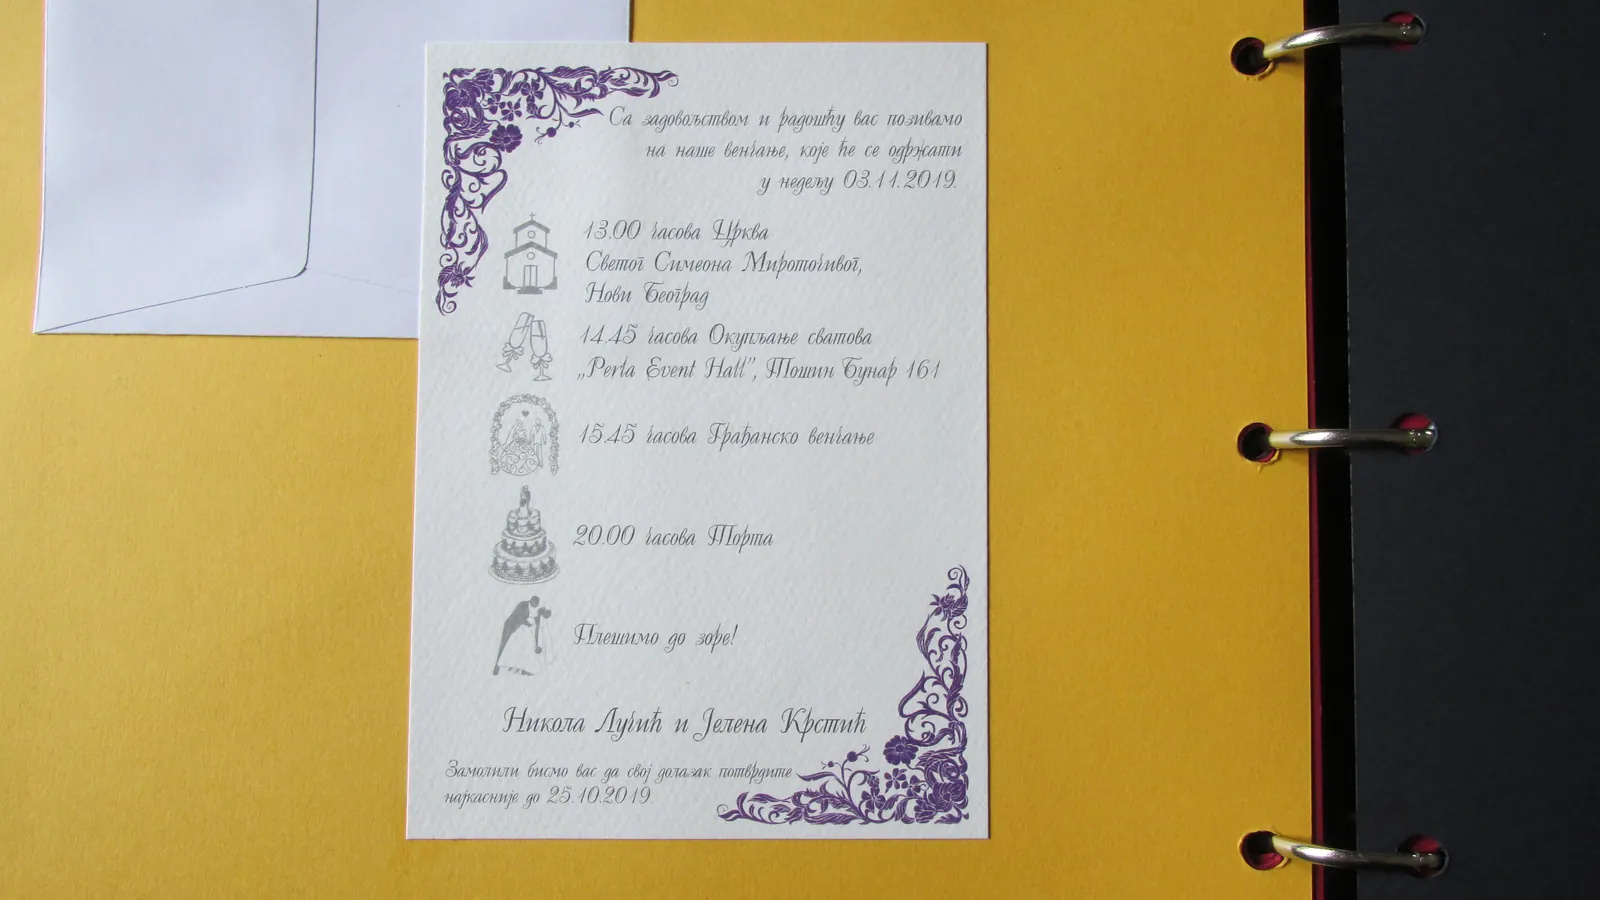 Са задовољством и радошћу вас позивамо
на наше венчање, које ће се одржати
у недељу 03.11.2019.
13.00 часова Црква
Светог Симеона Мироточивог,
Нови Београд
14.45 часова Окупљање сватова
„Perla Event Hall”, Тошин Бунар 161
15.45 часова Грађанско венчање
20.00 часова Торта
Плешимо до зоре!
Никола Лучић и Јелена Крстић
Замолили бисмо вас да свој долазак потврдите
најкасније до 25.10.2019.